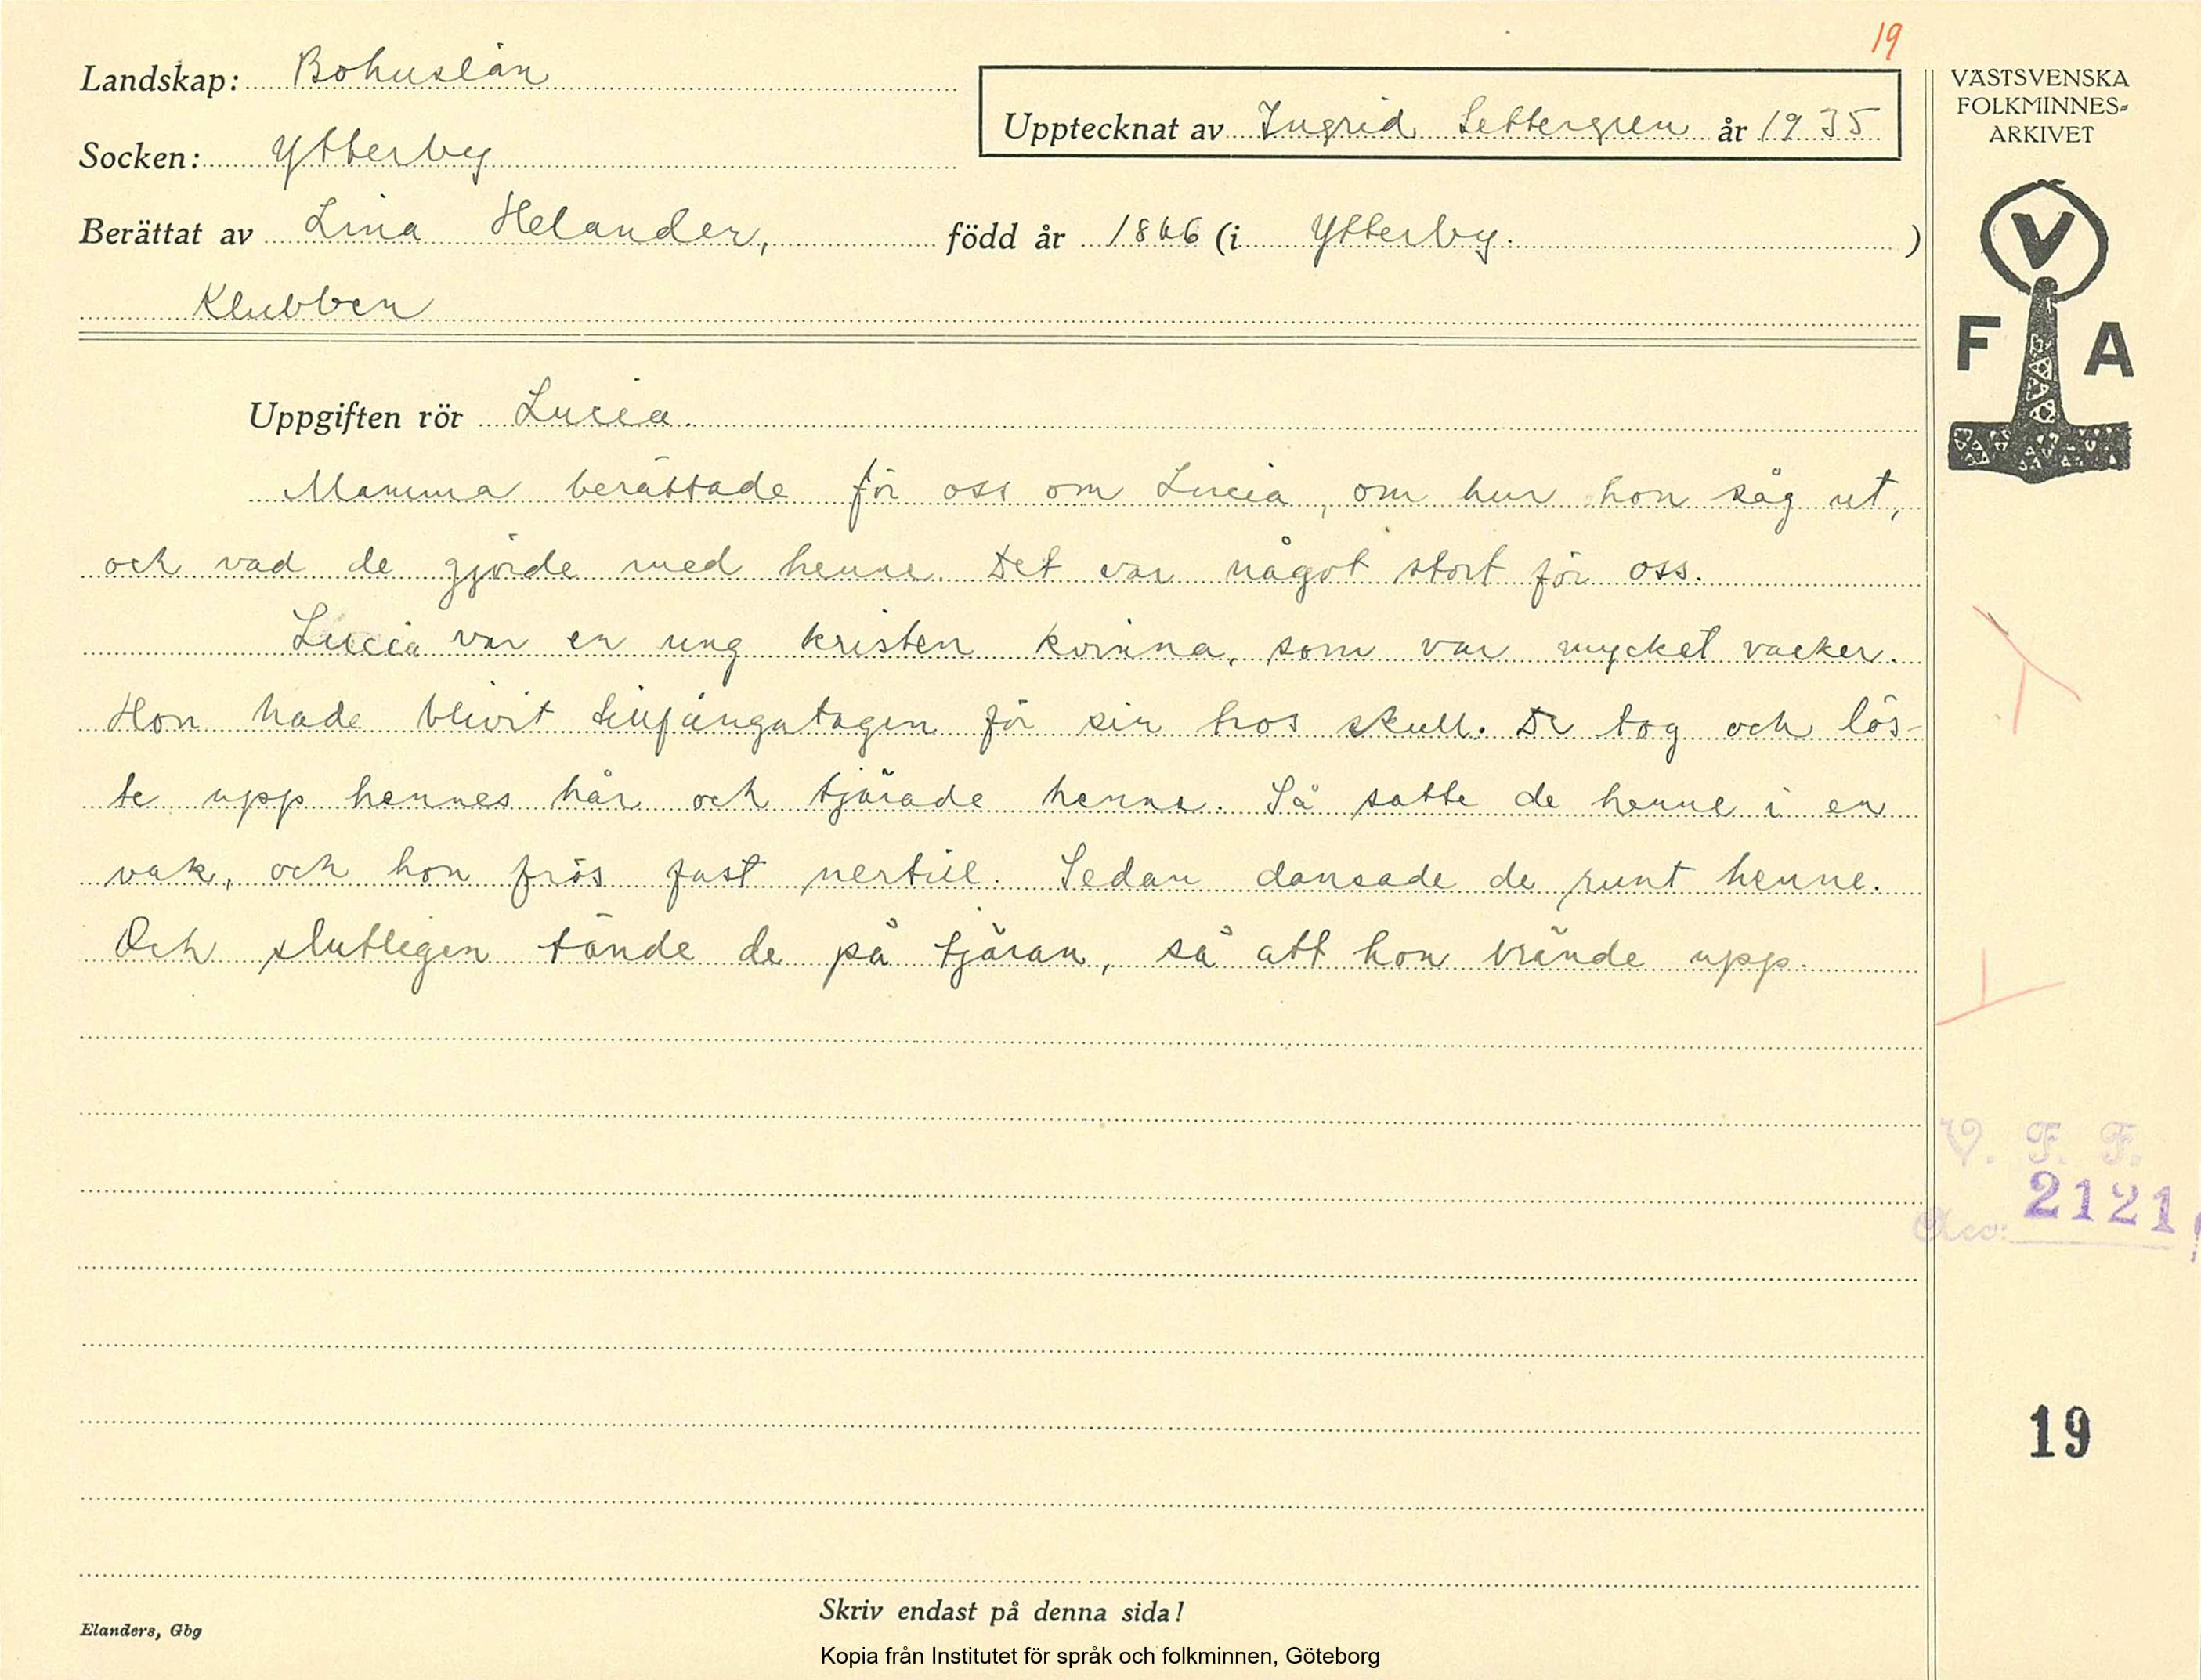 19
Landskap: Bohuslän
Upptecknat av Ingrid Settergren år 1935
VÄSTSVENSKA
FOLKMINNES-
ARKIVET
Socken: Ytterby
Berättat av Lina Helander, född år 1866 (i Ytterby. )
Klubben
V
F A
Uppgiften rör Lucia.
Mamma berättade för oss om Lucia, om hur hon såg ut,
och vad de gjorde med henne. Det var något stort för oss.
Lucia var en ung kristen kvinna, som var mycket vacker.
Hon hade blivit tillfångatagen för sin tros skull. De tog och lös-
te upp hennes hår och tjärade henne. Så satte de henne i en
vak, och hon frös fast nertill. Sedan dansade de runt henne.
Och slutligen tände de på tjäran, så att hon brände upp.
V. F. F.
Acc: 2121
19
Skriv endast på denna sida!
Elanders, Gbg
Kopia från Institutet för språk och folkminnen, Göteborg